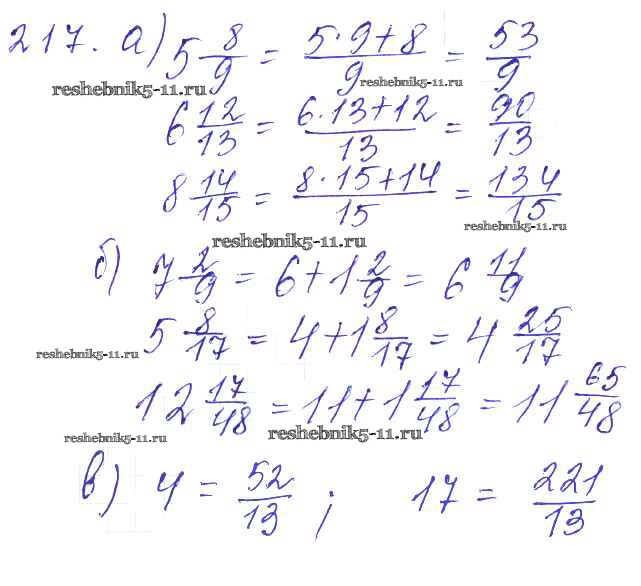 217. а) 5 8/9 = (5·9+8)/9 = 53/9
reshebnik5-11.ru reshebnik5-11.ru
6 12/13 = (6·13+12)/13 = 90/13
8 14/15 = (8·15+14)/15 = 134/15
reshebnik5-11.ru
reshebnik5-11.ru
б) 7 2/9 = 6+1 2/9 = 6 11/9
5 8/17 = 4+1 8/17 = 4 25/17
reshebnik5-11.ru
12 17/48 = 11+1 17/48 = 11 65/48
reshebnik5-11.ru reshebnik5-11.ru
в) 4 = 52/13 ; 17 = 221/13